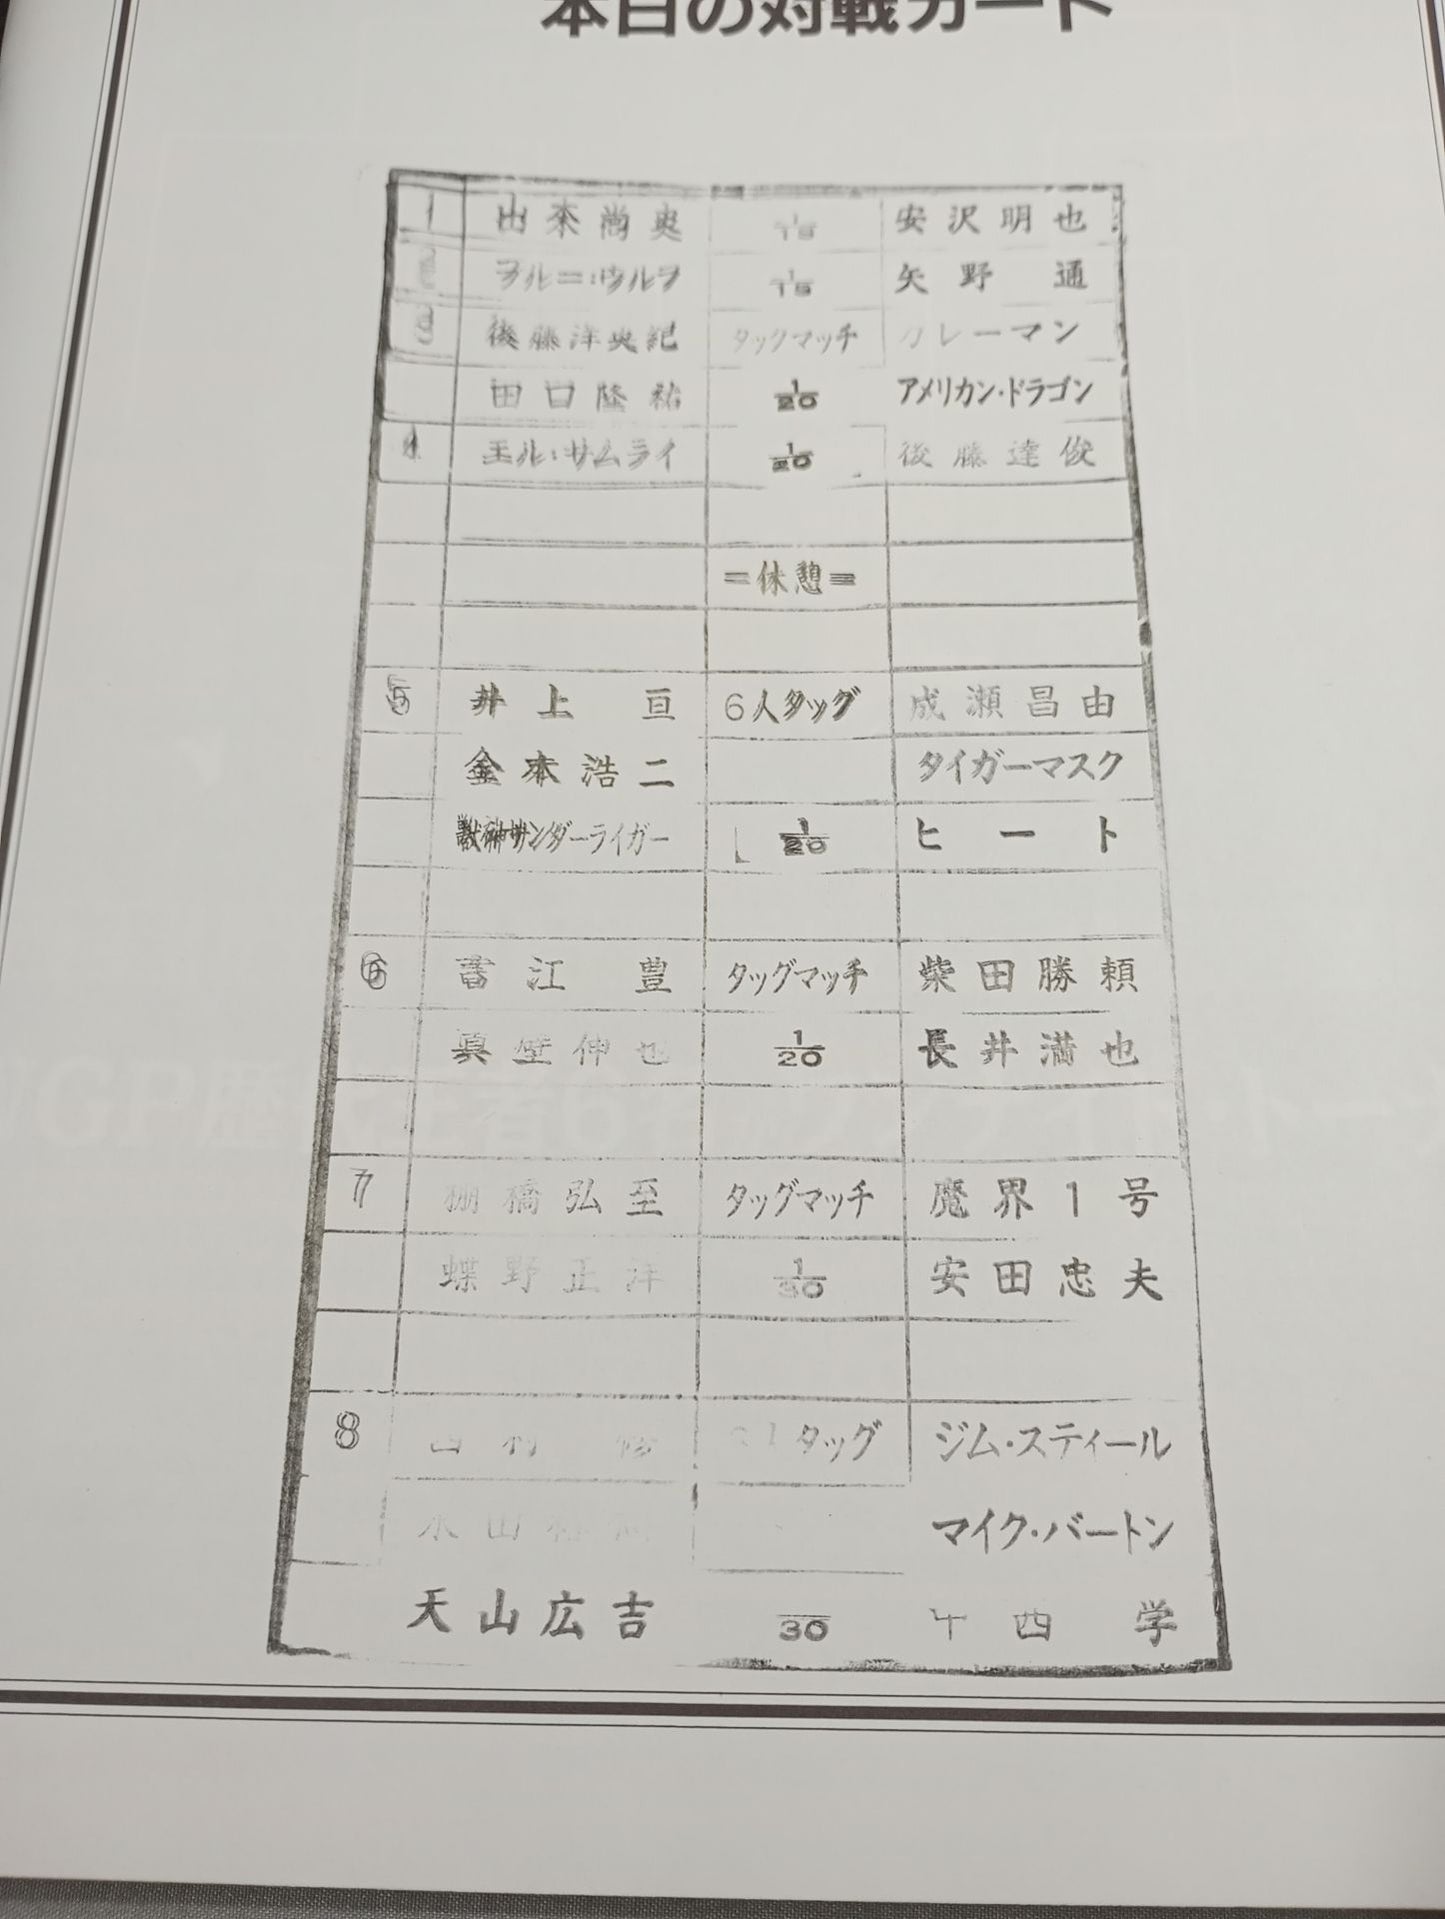 本日の対戦カード
1 山本尚史 1/15 安沢明也
ブルー・ウルフ 1/15 矢野 通
3 後藤洋央紀 タッグマッチ カレーマン
田口隆祐 1/20 アメリカン・ドラゴン
4 エル・サムライ 1/20 後藤達俊
=休憩=
5 井上 亘 6人タッグ 成瀬昌由
金本浩二 タイガーマスク
獣神サンダーライガー 1/20 ヒート
6 吉江 豊 タッグマッチ 柴田勝頼
真壁伸也 1/20 長井満也
7 棚橋弘至 タッグマッチ 魔界1号
蝶野正洋 1/30 安田忠夫
8 西村 修 タッグ ジム・スティール
永田 マイク・バートン
天山広吉 30 中西 学